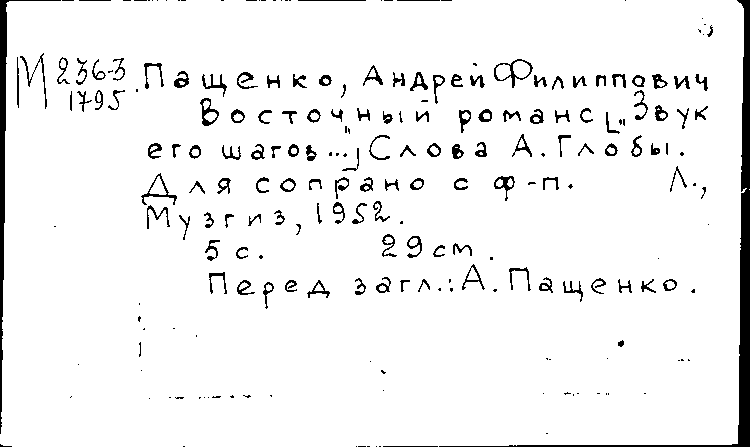 М 236-3 Пащенко, Андрей Филиппович
1795. Восточный романс [„Звук
его шагов...“] Слова А. Глобы.
Для сопрано с ф-п. Л.,
Музгиз, 1952.
5 с. 29 см.
Перед загл.: А. Пащенко.